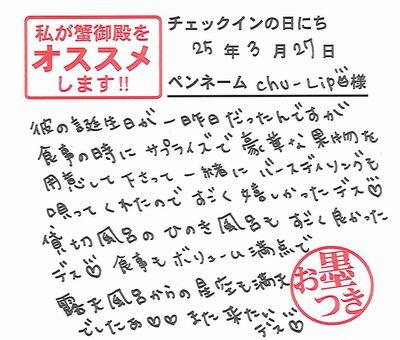 私が蟹御殿を
オススメ
します!!
チェックインの日にち
25年3月27日
ペンネーム chu-Lip様
彼の誕生日が一昨日だったんですが
食事の時にサプライズで豪華な果物を
用意して下さって一緒にバースディソングも
唄ってくれたのですごく嬉しかったデス♡
貸切風呂のひのき風呂もすごく良かった
デス♡ 食事もボリューム満点で
露天風呂からの星空も満天
でしたぁ♡♡ また来たい
デス♡
お墨
つき